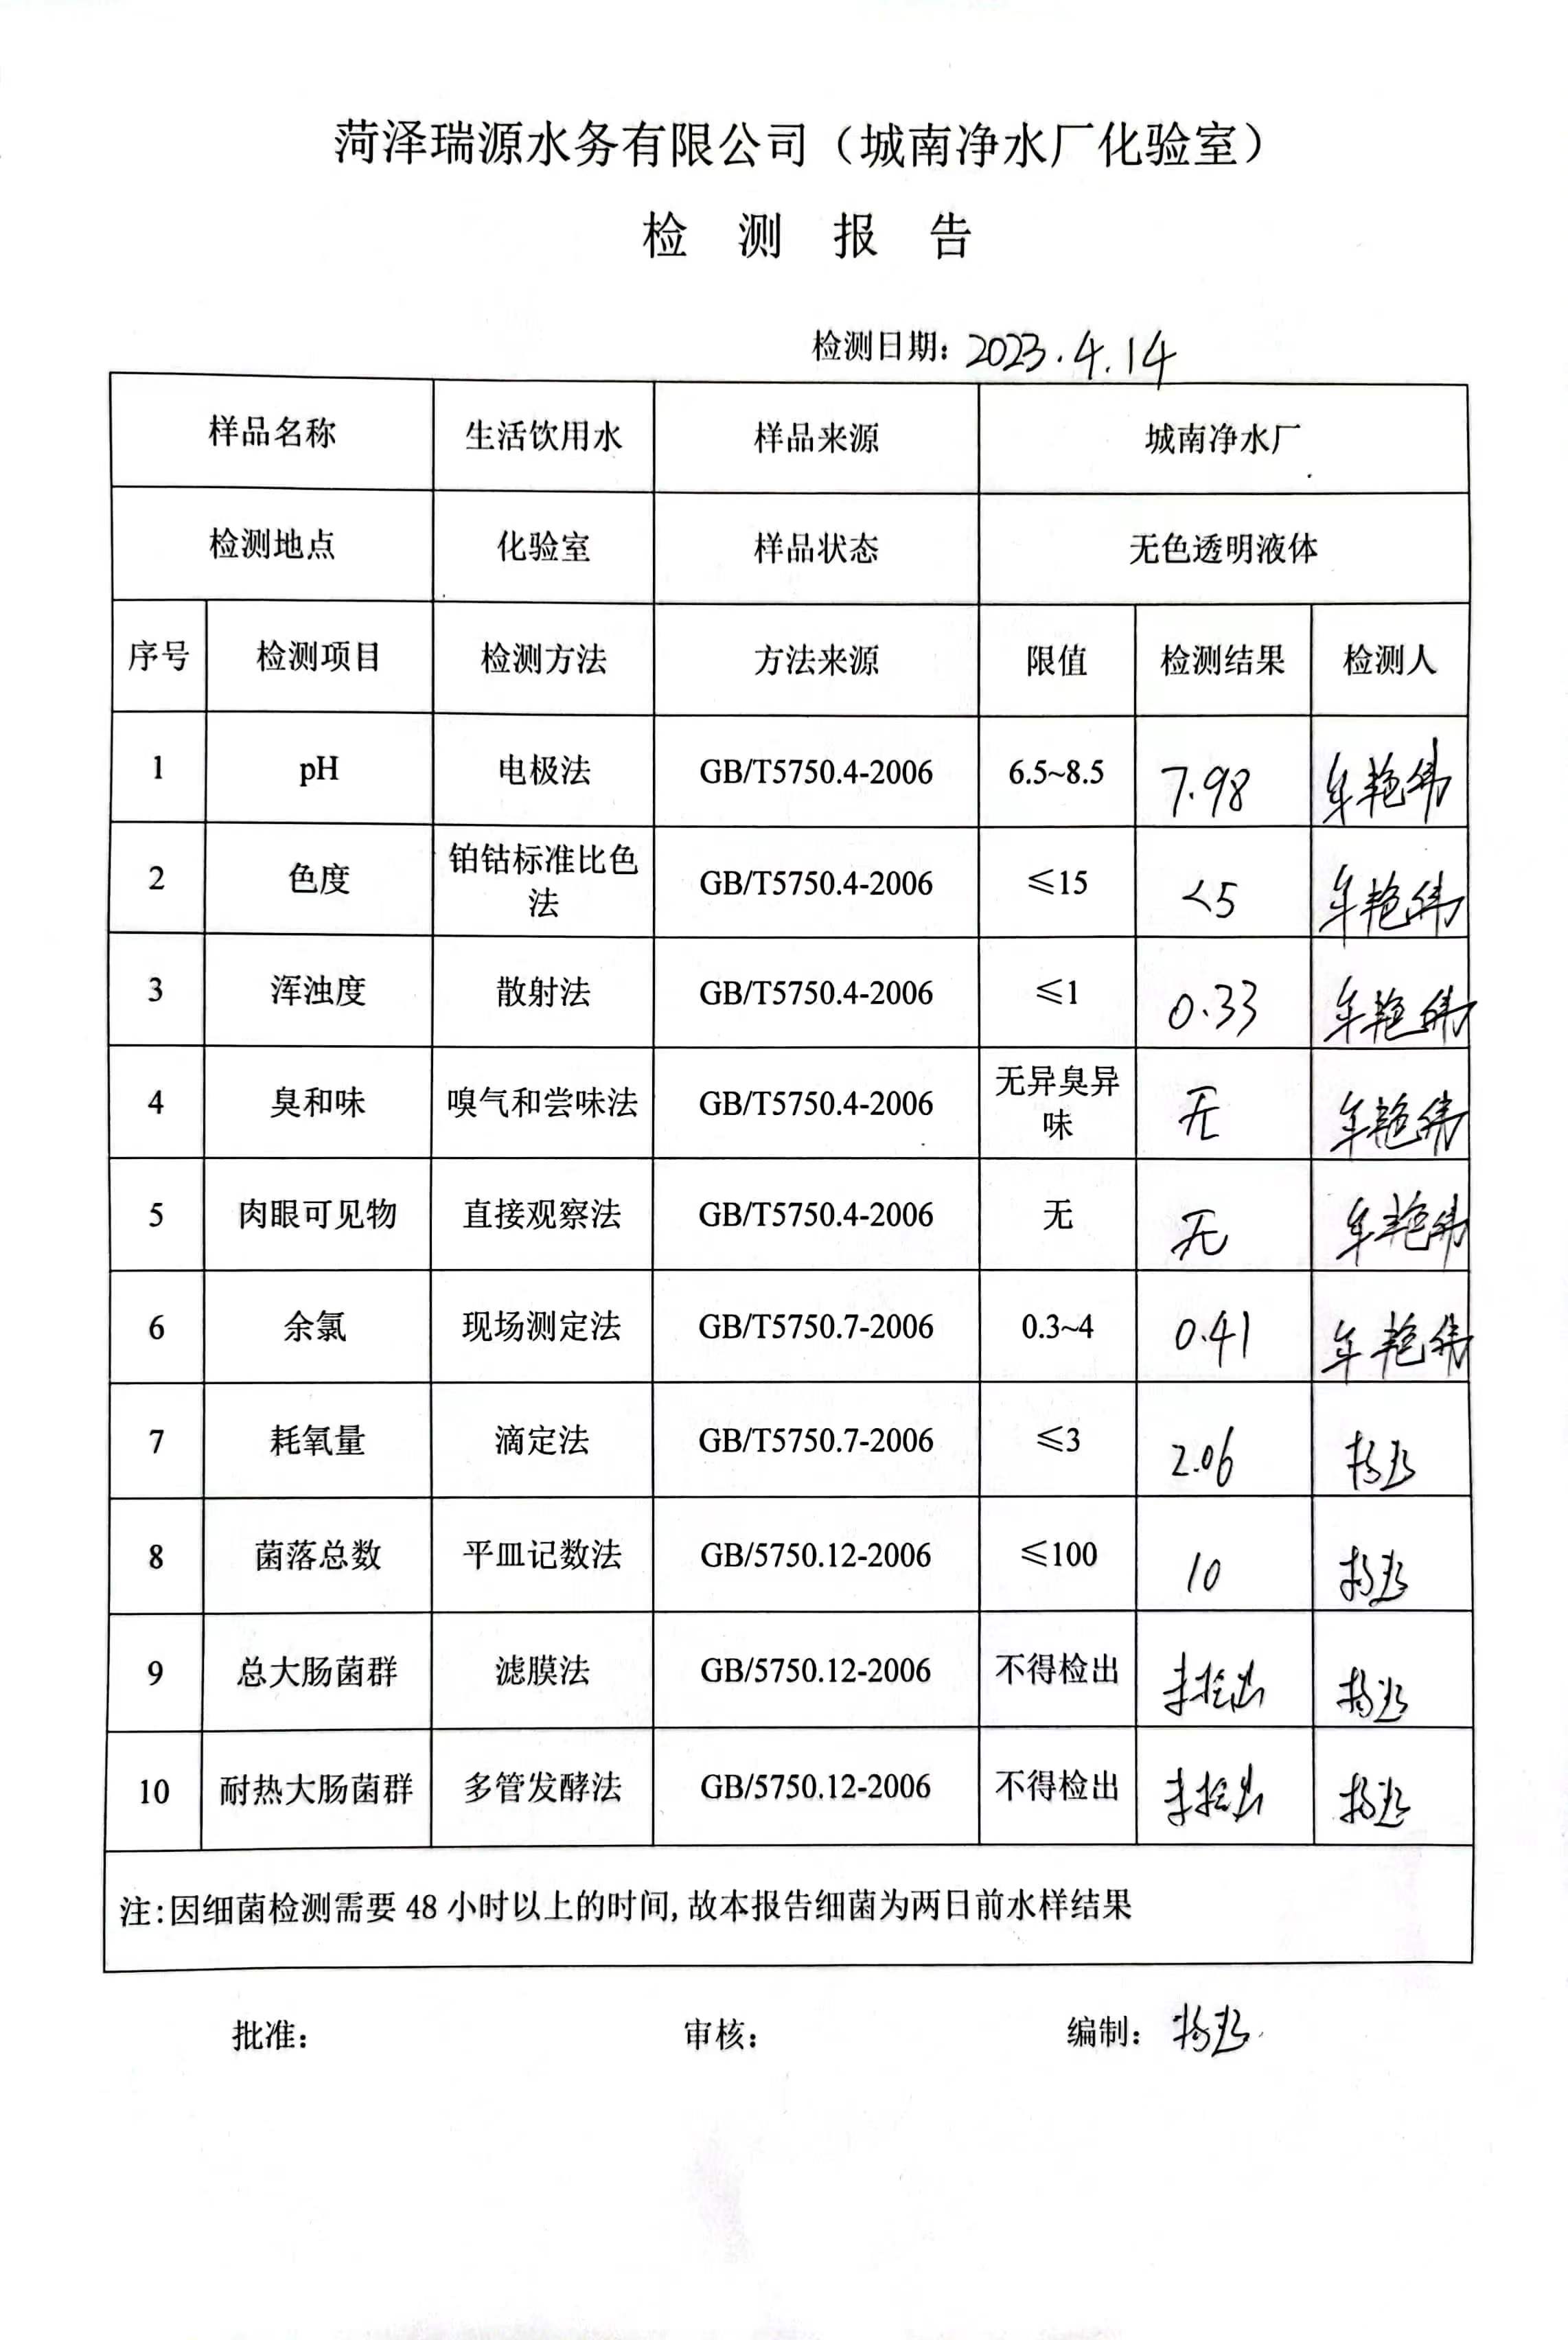 菏泽瑞源水务有限公司（城南净水厂化验室）
检 测 报 告
检测日期：2023.4.14
样品名称 生活饮用水 样品来源 城南净水厂
检测地点 化验室 样品状态 无色透明液体
序号 检测项目 检测方法 方法来源 限值 检测结果 检测人
1 pH 电极法 GB/T5750.4-2006 6.5~8.5 7.98
2 色度 铂钴标准比色法 GB/T5750.4-2006 ≤15 <5
3 浑浊度 散射法 GB/T5750.4-2006 ≤1 0.33
4 臭和味 嗅气和尝味法 GB/T5750.4-2006 无异臭异味 无
5 肉眼可见物 直接观察法 GB/T5750.4-2006 无 无
6 余氯 现场测定法 GB/T5750.7-2006 0.3~4 0.41
7 耗氧量 滴定法 GB/T5750.7-2006 ≤3 2.06
8 菌落总数 平皿记数法 GB/5750.12-2006 ≤100 10
9 总大肠菌群 滤膜法 GB/5750.12-2006 不得检出 未检出
10 耐热大肠菌群 多管发酵法 GB/5750.12-2006 不得检出 未检出
注:因细菌检测需要 48 小时以上的时间,故本报告细菌为两日前水样结果
批准： 审核： 编制：